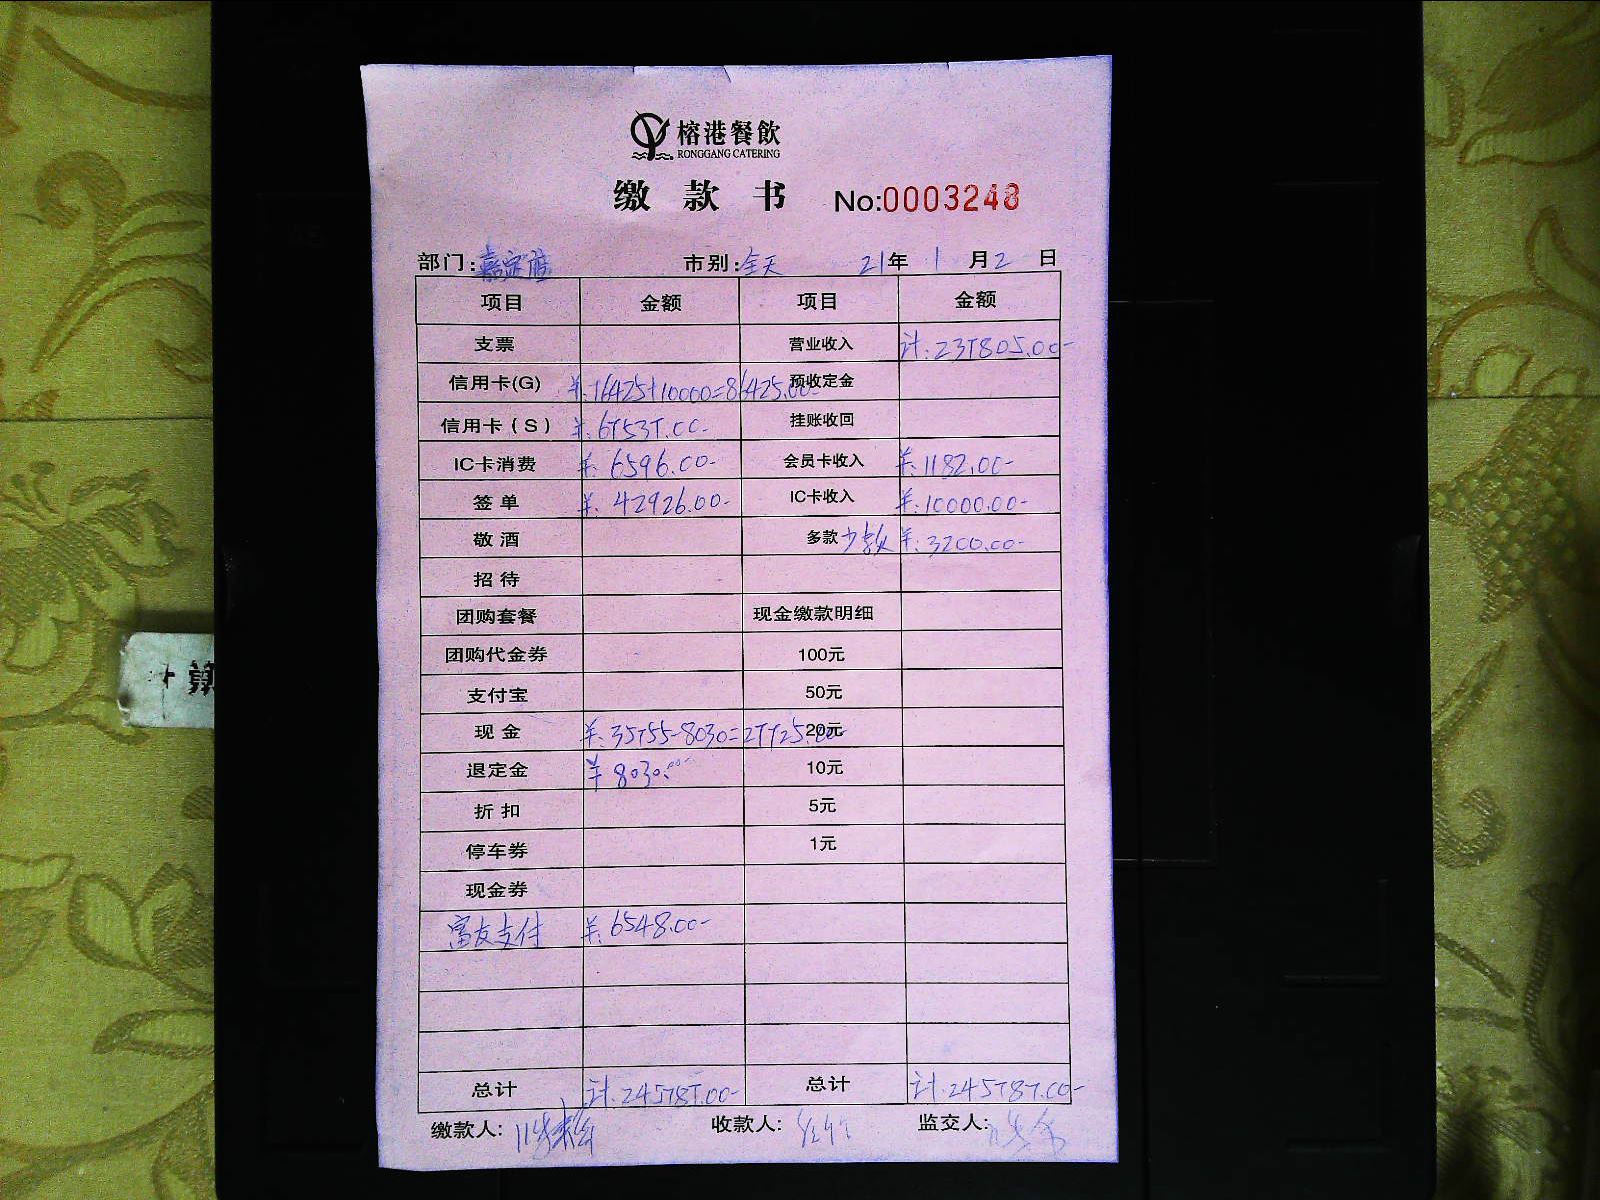 榕港餐飲
RONGGANG CATERING
缴款书 No:0003248
部门:嘉定店 市别:全天 21年 1月2日
项目 金额 项目 金额
支票 营业收入 计:237805.00-
信用卡(G) ¥:76425+10000=86425.00- 预收定金
信用卡(S) ¥:67537.00- 挂账收回
IC卡消费 ¥:6596.00- 会员卡收入 ¥:1182.00-
签单 ¥:42926.00- IC卡收入 ¥:10000.00-
敬酒 多款少款 ¥:3200.00-
招待
团购套餐 现金缴款明细
团购代金券 100元
支付宝 50元
现金 ¥:35755-8030=27725.00- 20元
退定金 ¥8030.00- 10元
折扣 5元
停车券 1元
现金券
富友支付 ¥:6548.00-
总计 计:245787.00- 总计 计:245787.00-
缴款人: 收款人: 监交人: